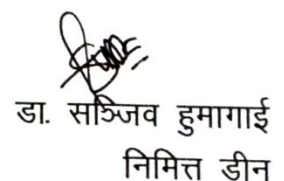 डा. सञ्जिव हुमागाई
निमित्त डीन